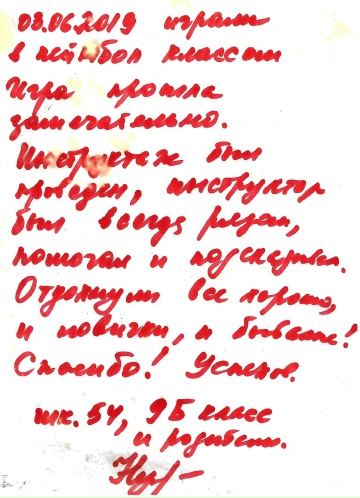 03.06.2019 играли
в пейнтбол классом
Игра прошла
замечательно.
Инструктаж был
проведен, инструктор
был всегда рядом,
помогал и подсказывал.
Отдохнули все хорошо,
и новички, и бывалые!
Спасибо! Успехов.
шк. 54, 9Б класс
и родители.